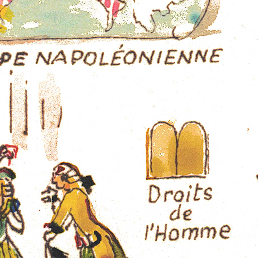 PE NAPOLÉONIENNE
Droits
de
l'Homme